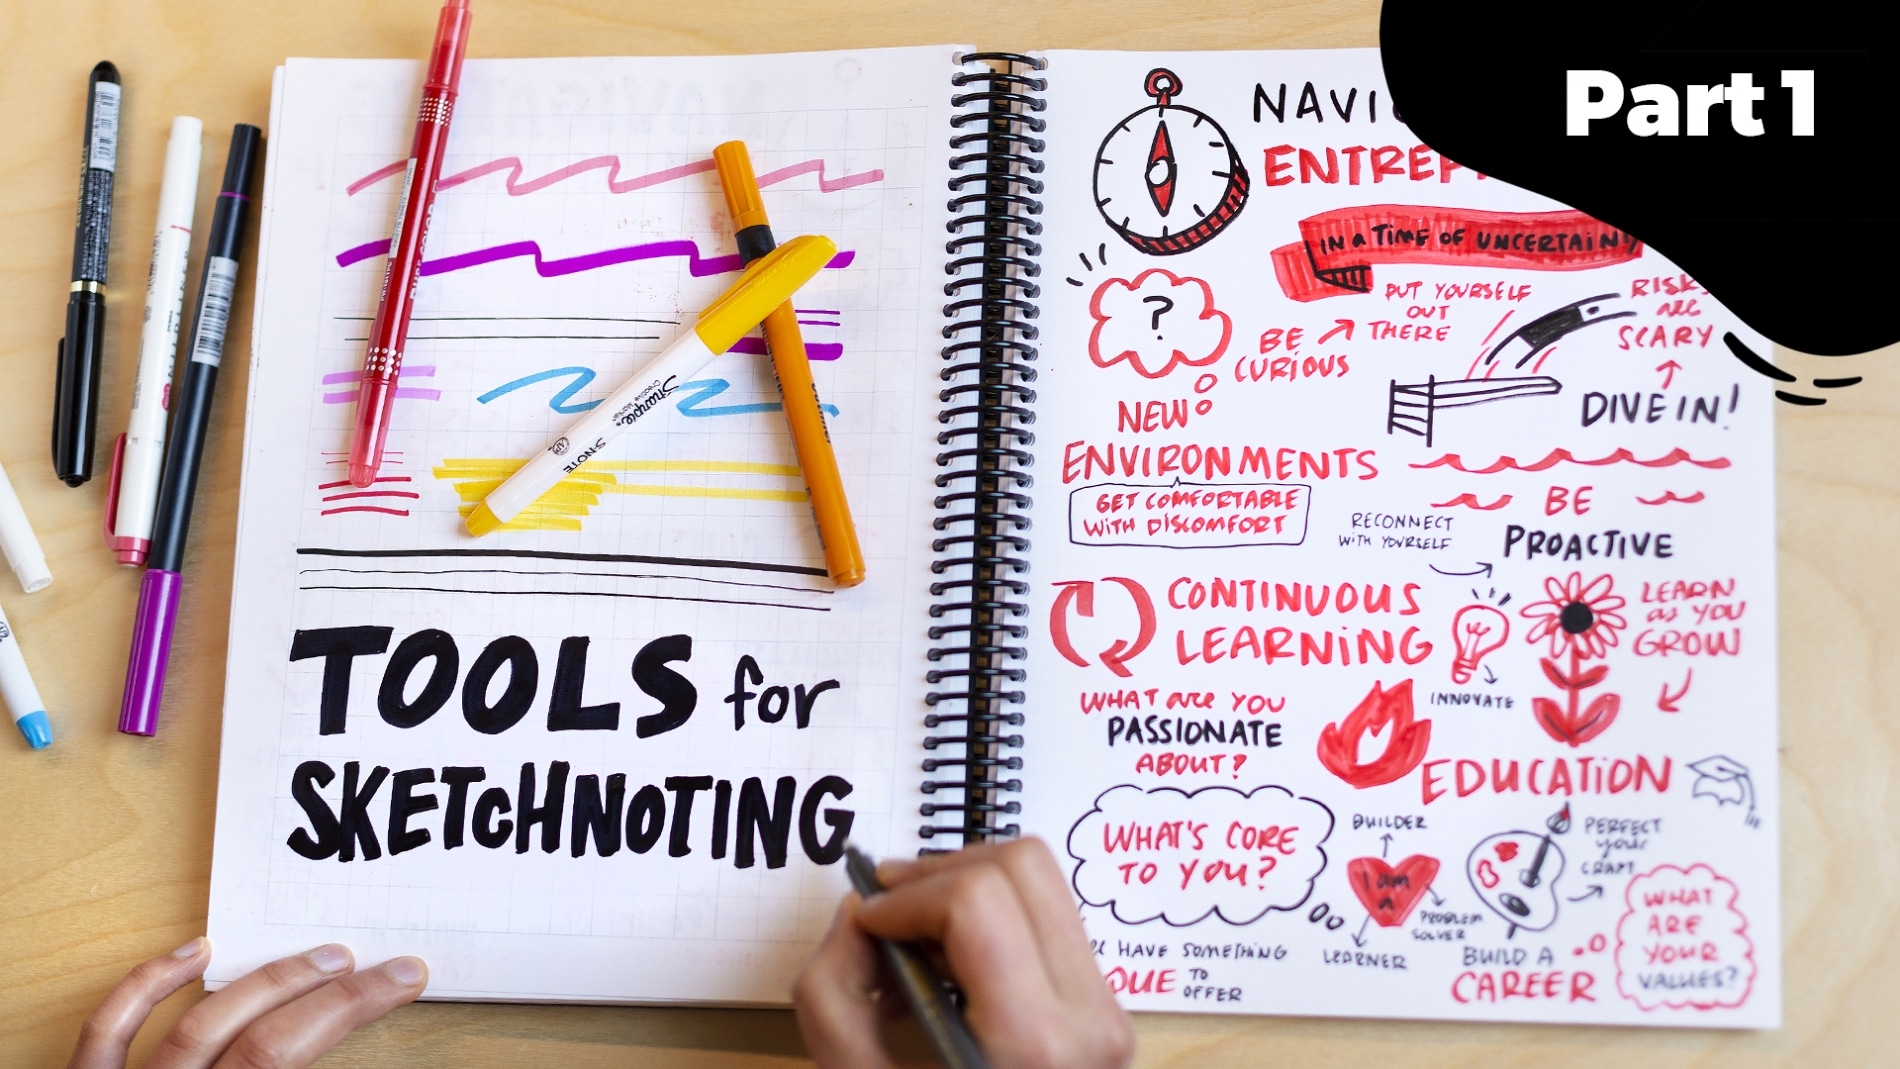 Part 1
Sharpie
CREATIVE MARKER
S·NOTE
TOOLS for
SKETCHNOTING
NAVI
ENTREP
IN a TIME OF UNCERTAINTY
PUT YOURSELF
OUT
THERE
BE
CURIOUS
RISKS
are
SCARY
DIVE IN!
?
NEW
ENVIRONMENTS
GET COMFORTABLE
WITH DISCOMFORT
RECONNECT
WITH YOURSELF
BE
PROACTIVE
CONTINUOUS
LEARNING
INNOVATE
LEARN
as YOU
GROW
WHAT are YOU
PASSIONATE
ABOUT?
EDUCATION
WHAT'S CORE
TO YOU?
BUILDER
I am
a
PROBLEM
SOLVER
LEARNER
PERFECT
your
CRAFT
BUILD A
CAREER
WHAT
ARE
YOUR
VALUES?
HAVE SOMETHING
QUE TO
OFFER